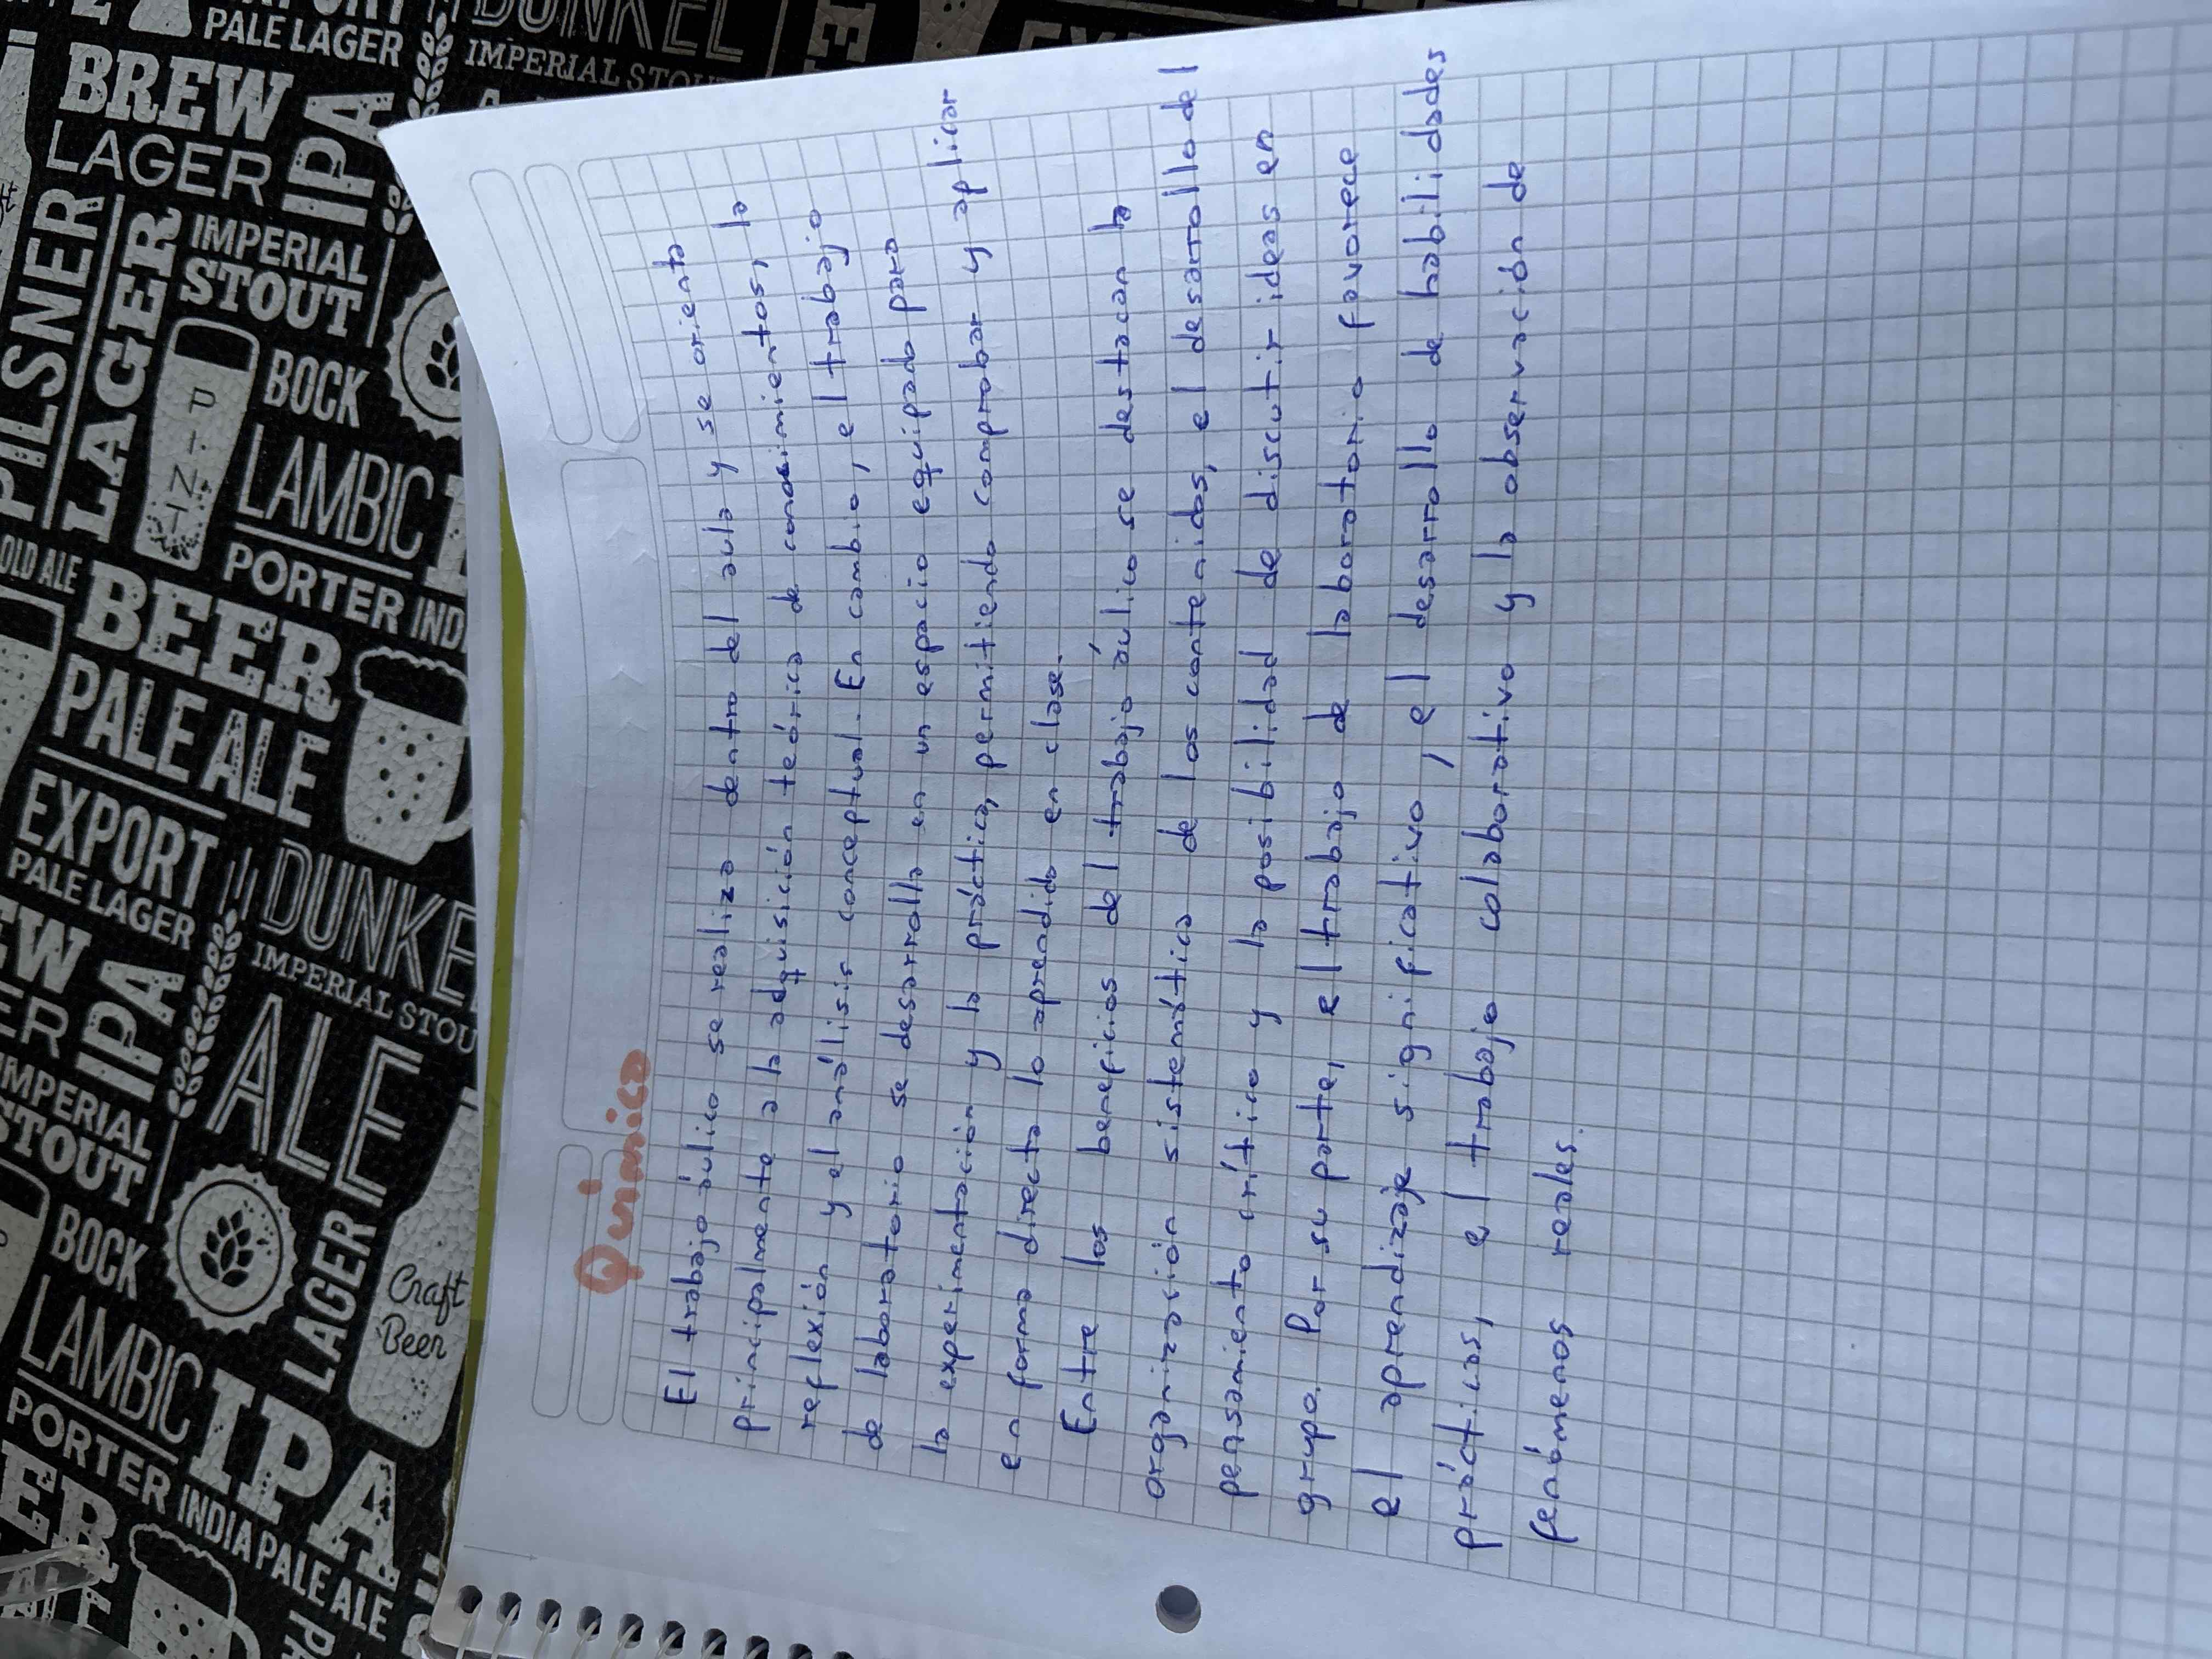 Química
El trabajo áulico se realiza dentro del aula y se orienta
principalmente a la adquisición teórica de conocimientos, la
reflexión y el análisis conceptual. En cambio, el trabajo
de laboratorio se desarrolla en un espacio equipado para
la experimentación y la práctica, permitiendo comprobar y aplicar
en forma directa lo aprendido en clase.
Entre los beneficios del trabajo áulico se destacan la
organización sistemática de los contenidos, el desarrollo del
pensamiento crítico y la posibilidad de discutir ideas en
grupo. Por su parte, el trabajo de laboratorio favorece
el aprendizaje significativo, el desarrollo de habilidades
prácticas, el trabajo colaborativo y la observación de
fenómenos reales.
PALE LAGER
DUNKEL
IMPERIAL STOUT
BREW
LAGER
IPA
PILSNER
LAGER
IMPERIAL
STOUT
PINT
BOCK
LAMBIC
PORTER
OLD ALE
BEER
PALE ALE
EXPORT
PALE LAGER
DUNKEL
IMPERIAL STOUT
IPA
ALE
IMPERIAL
STOUT
BOCK
LAGER
Craft
Beer
LAMBIC
PORTER
IPA
INDIA PALE ALE